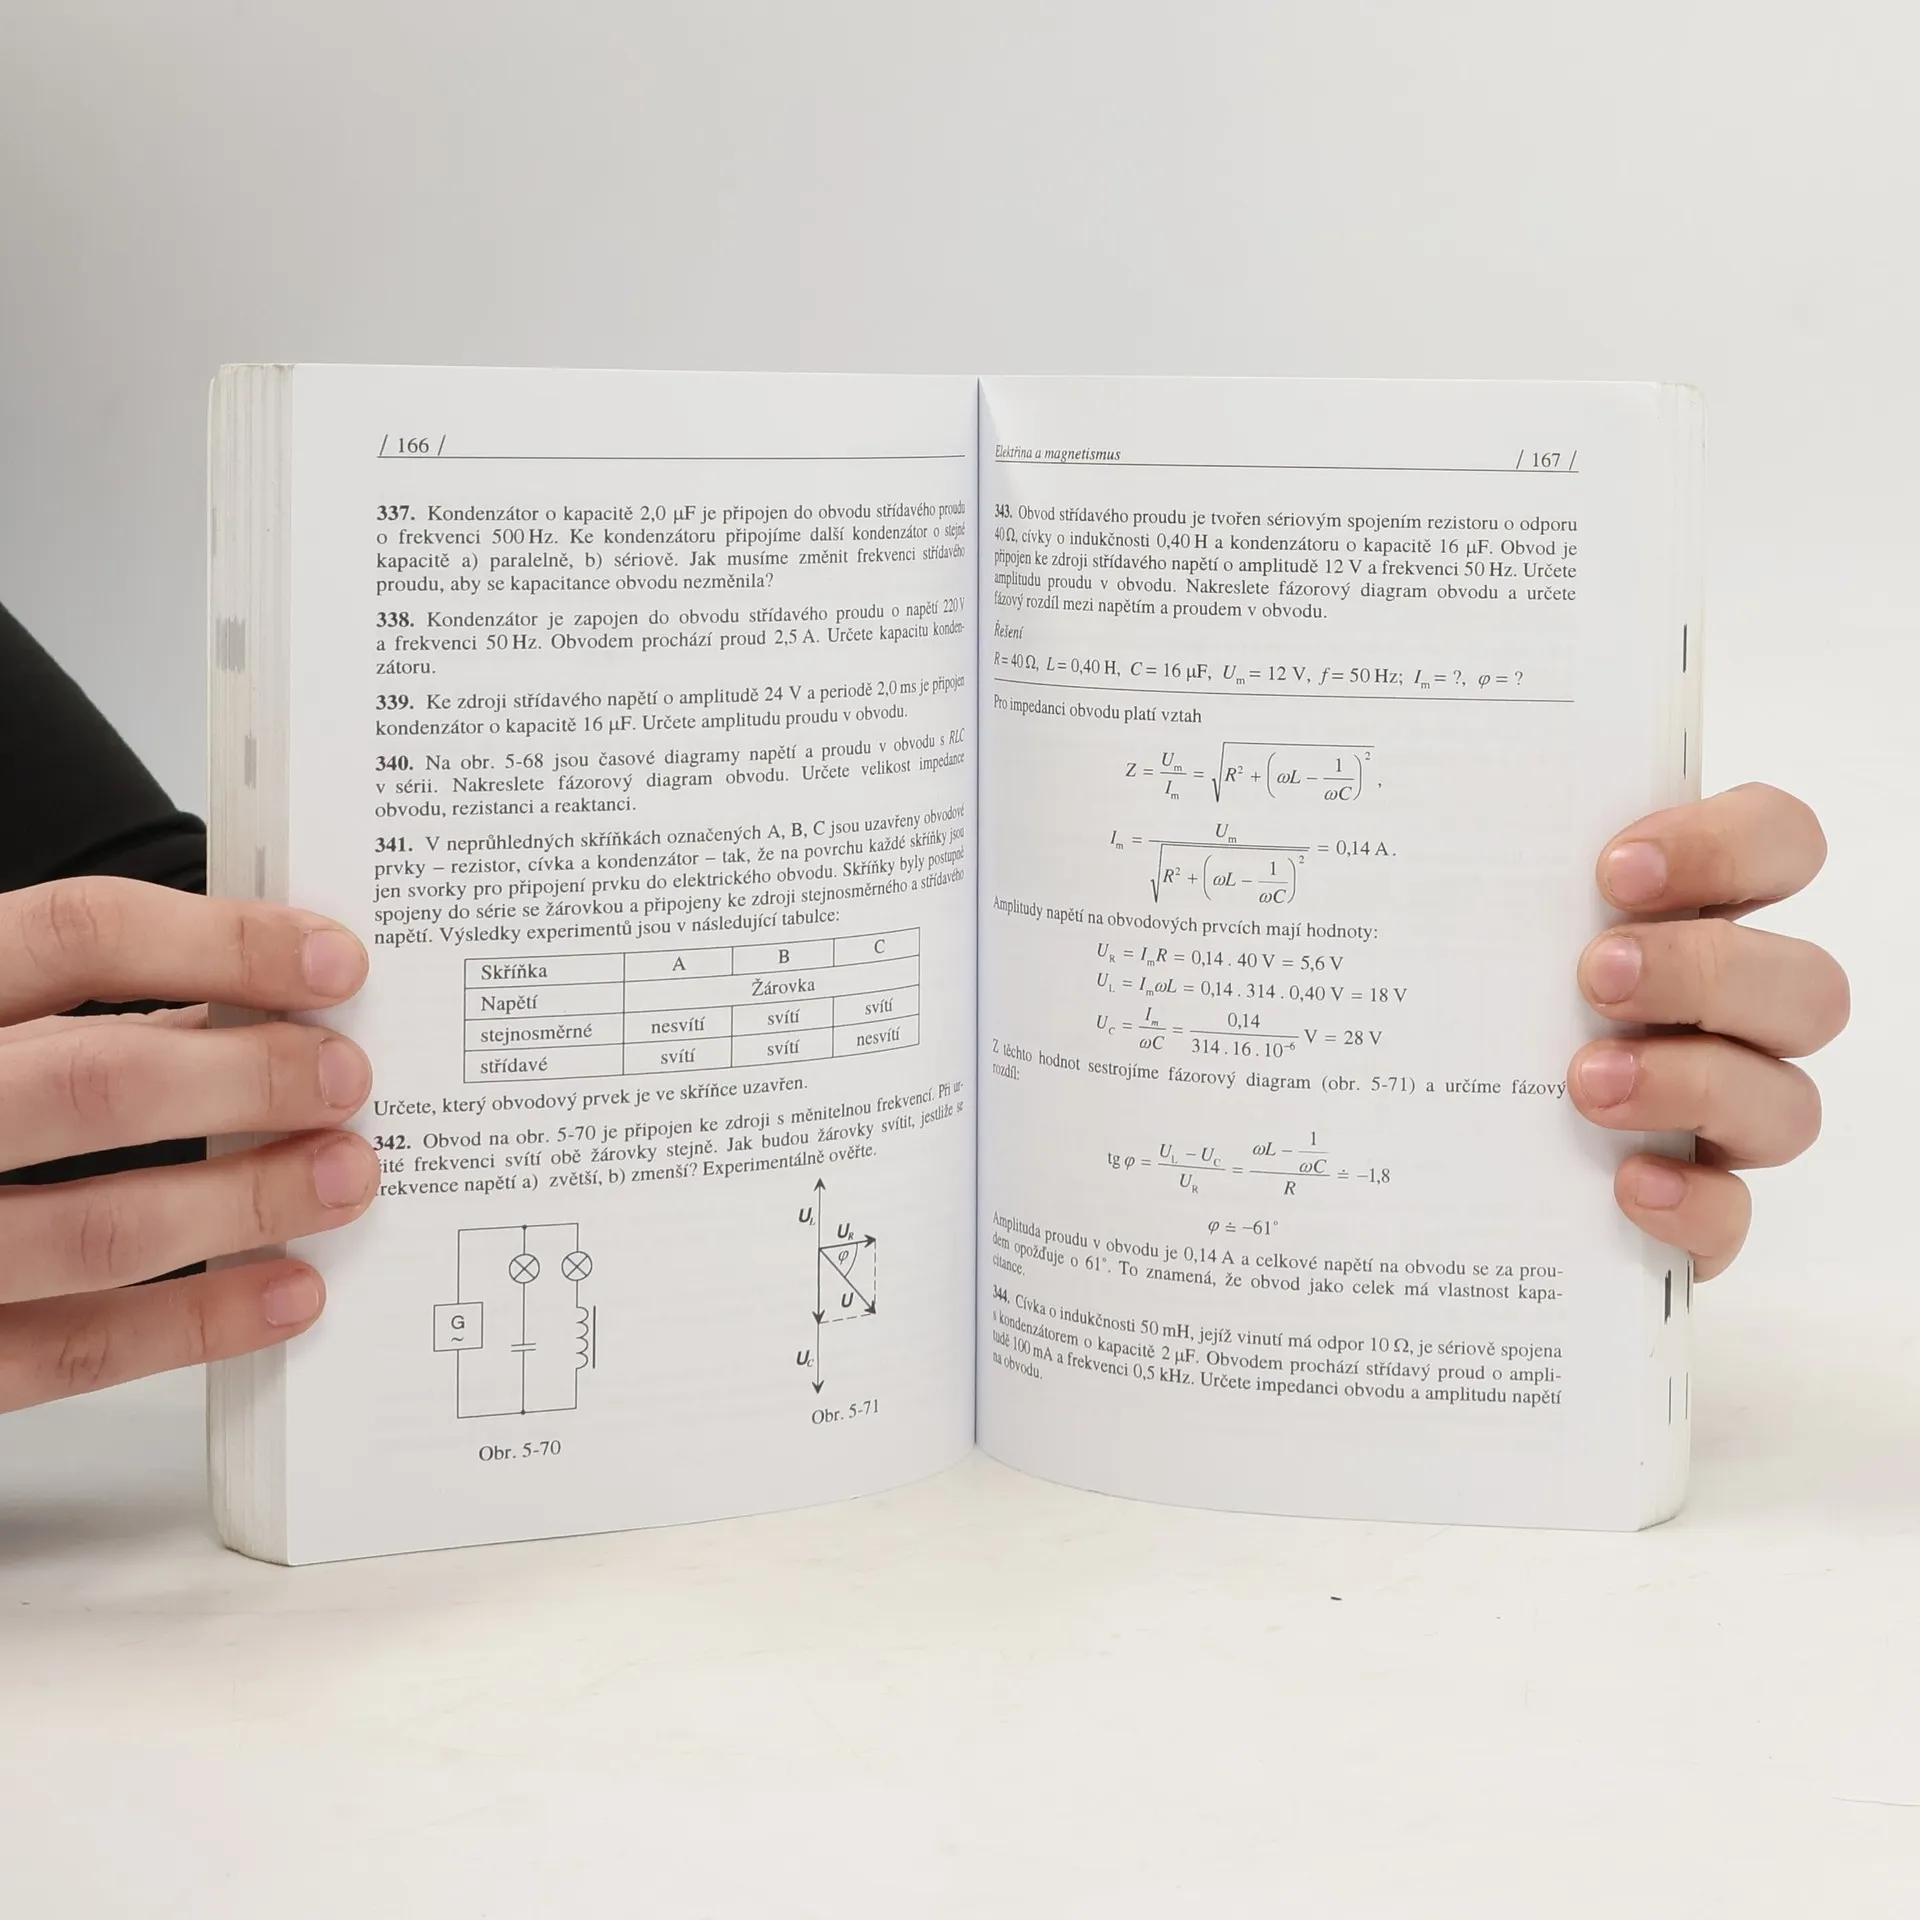 / 166 /
337. Kondenzátor o kapacitě 2,0 μF je připojen do obvodu střídavého proudu
o frekvenci 500 Hz. Ke kondenzátoru připojíme další kondenzátor o stejné
kapacitě a) paralelně, b) sériově. Jak musíme změnit frekvenci střídavého
proudu, aby se kapacitance obvodu nezměnila?
338. Kondenzátor je zapojen do obvodu střídavého proudu o napětí 220 V
a frekvenci 50 Hz. Obvodem prochází proud 2,5 A. Určete kapacitu konden-
zátoru.
339. Ke zdroji střídavého napětí o amplitudě 24 V a periodě 2,0 ms je připojen
kondenzátor o kapacitě 16 μF. Určete amplitudu proudu v obvodu.
340. Na obr. 5-68 jsou časové diagramy napětí a proudu v obvodu s RLC
v sérii. Nakreslete fázorový diagram obvodu. Určete velikost impedance
obvodu, rezistanci a reaktanci.
341. V neprůhledných skříňkách označených A, B, C jsou uzavřeny obvodové
prvky – rezistor, cívka a kondenzátor – tak, že na povrchu každé skříňky jsou
jen svorky pro připojení prvku do elektrického obvodu. Skříňky byly postupně
spojeny do série se žárovkou a připojeny ke zdroji stejnosměrného a střídavého
napětí. Výsledky experimentů jsou v následující tabulce:
Skříňka A B C
Napětí Žárovka
stejnosměrné nesvítí svítí svítí
střídavé svítí svítí nesvítí
Určete, který obvodový prvek je ve skříňce uzavřen.
342. Obvod na obr. 5-70 je připojen ke zdroji s měnitelnou frekvencí. Při ur-
ité frekvenci svítí obě žárovky stejně. Jak budou žárovky svítit, jestliže se
rekvence napětí a) zvětší, b) zmenší? Experimentálně ověřte.
G
~
Obr. 5-70
U_L
U_R
φ
U
U_C
Obr. 5-71
Elektřina a magnetismus / 167 /
343. Obvod střídavého proudu je tvořen sériovým spojením rezistoru o odporu
40 Ω, cívky o indukčnosti 0,40 H a kondenzátoru o kapacitě 16 μF. Obvod je
připojen ke zdroji střídavého napětí o amplitudě 12 V a frekvenci 50 Hz. Určete
amplitudu proudu v obvodu. Nakreslete fázorový diagram obvodu a určete
fázový rozdíl mezi napětím a proudem v obvodu.
Řešení
R = 40 Ω, L = 0,40 H, C = 16 μF, U_m = 12 V, f = 50 Hz; I_m = ?, φ = ?
Pro impedanci obvodu platí vztah
Z = U_m / I_m = √(R² + (ωL − 1/(ωC))²),
I_m = U_m / √(R² + (ωL − 1/(ωC))²) = 0,14 A.
Amplitudy napětí na obvodových prvcích mají hodnoty:
U_R = I_m R = 0,14 . 40 V = 5,6 V
U_L = I_m ωL = 0,14 . 314 . 0,40 V = 18 V
U_C = I_m / ωC = 0,14 / (314 . 16 . 10⁻⁶) V = 28 V
Z těchto hodnot sestrojíme fázorový diagram (obr. 5-71) a určíme fázový
rozdíl:
tg φ = (U_L − U_C) / U_R = (ωL − 1/(ωC)) / R ≐ −1,8
φ ≐ −61°
Amplituda proudu v obvodu je 0,14 A a celkové napětí na obvodu se za prou-
dem opožďuje o 61°. To znamená, že obvod jako celek má vlastnost kapa-
citance.
344. Cívka o indukčnosti 50 mH, jejíž vinutí má odpor 10 Ω, je sériově spojena
s kondenzátorem o kapacitě 2 μF. Obvodem prochází střídavý proud o ampli-
tudě 100 mA a frekvenci 0,5 kHz. Určete impedanci obvodu a amplitudu napětí
na obvodu.